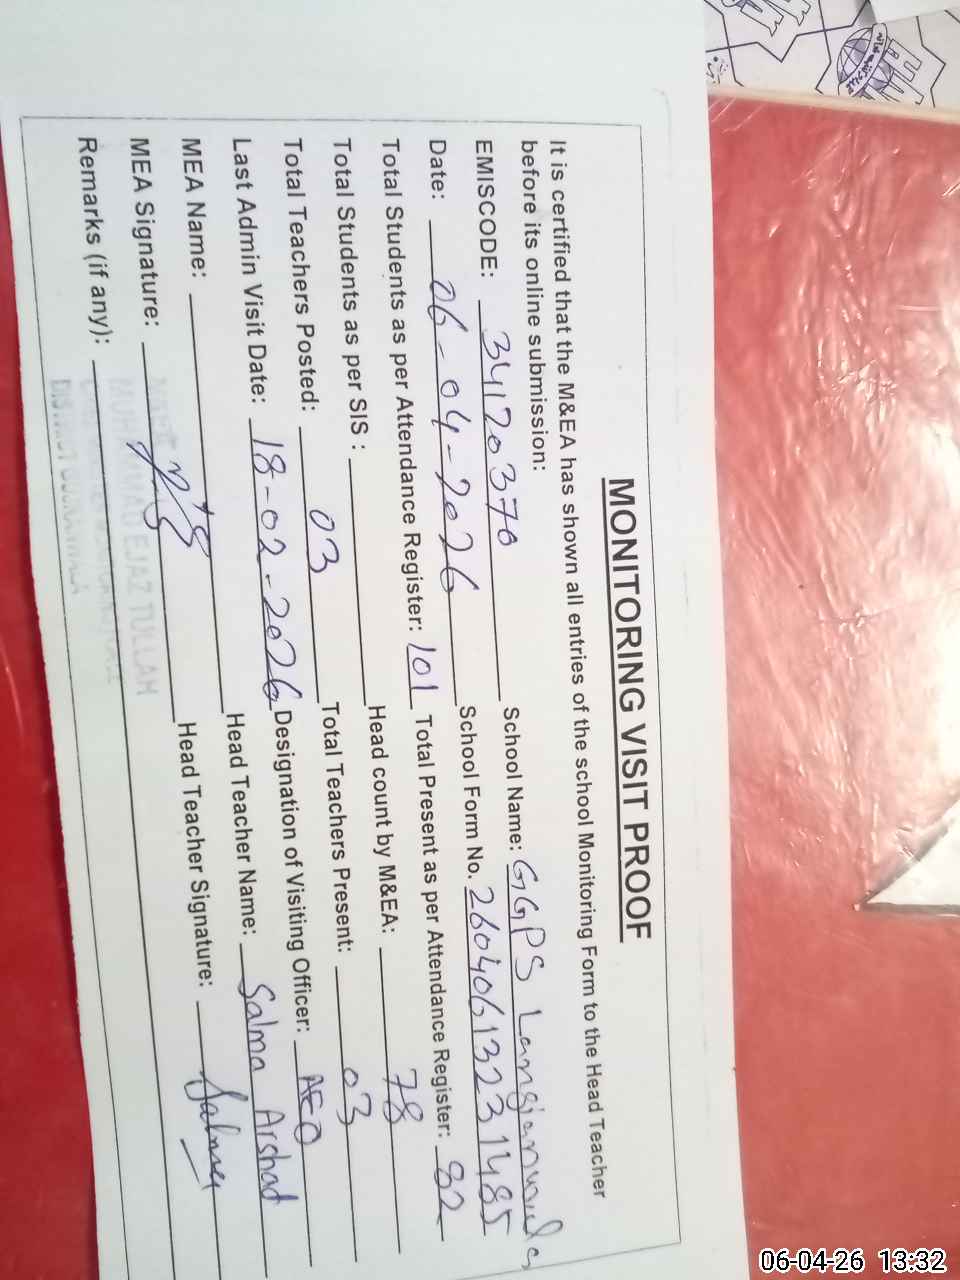 MONITORING VISIT PROOF
It is certified that the M&EA has shown all entries of the school Monitoring Form to the Head Teacher
before its online submission:
EMISCODE: 34120370 School Name: GGPS
Date: 06-04-2026 School Form No. 26040613231485
Total Students as per Attendance Register: 101 Total Present as per Attendance Register: 82
Total Students as per SIS : Head count by M&EA: 78
Total Teachers Posted: 03 Total Teachers Present: 03
Last Admin Visit Date: 18-02-2026 Designation of Visiting Officer: AEO
MEA Name: Head Teacher Name: Salma Arshad
MEA Signature: Head Teacher Signature: Salma
Remarks (if any):
MUHAMMAD EJAZ TULLAH
06-04-26 13:32